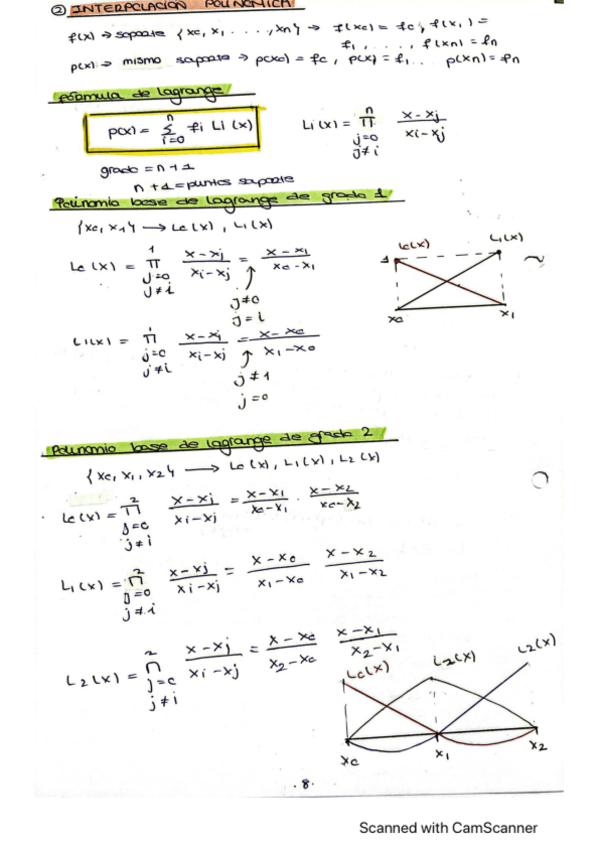 ② INTERPOLACIÓN POLINÓMICA
f(x) → soporte {x0, x1, ..., xn} → f(x0) = f0, f(x1) =
f1, ..., f(xn) = fn
p(x) → mismo soporte → p(x0) = f0, p(x1) = f1 ... p(xn) = fn
Fórmula de Lagrange
p(x) = Σ_{i=0}^{n} fi Li(x)    Li(x) = Π_{j=0, j≠i}^{n} (x-xj)/(xi-xj)
grado = n+1
n+1 = puntos soporte
Polinomio base de Lagrange de grado 1
{x0, x1} → L0(x), L1(x)
L0(x) = Π_{j=0, j≠i}^{1} (x-xj)/(xi-xj) = (x-x1)/(x0-x1)
j≠0
j=i
L0(x) L1(x)
1
x0 x1
L1(x) = Π_{j=0, j≠i}^{1} (x-xj)/(xi-xj) = (x-x0)/(x1-x0)
j≠1
j=0
Polinomio base de Lagrange de grado 2
{x0, x1, x2} → L0(x), L1(x), L2(x)
L0(x) = Π_{j=0, j≠i}^{2} (x-xj)/(xi-xj) = (x-x1)/(x0-x1) · (x-x2)/(x0-x2)
L1(x) = Π_{j=0, j≠i}^{2} (x-xj)/(xi-xj) = (x-x0)/(x1-x0) (x-x2)/(x1-x2)
L2(x) = Π_{j=0, j≠i}^{2} (x-xj)/(xi-xj) = (x-x0)/(x2-x0) (x-x1)/(x2-x1)
L0(x) L2(x) L2(x)
x0 x1 x2
·8·
Scanned with CamScanner